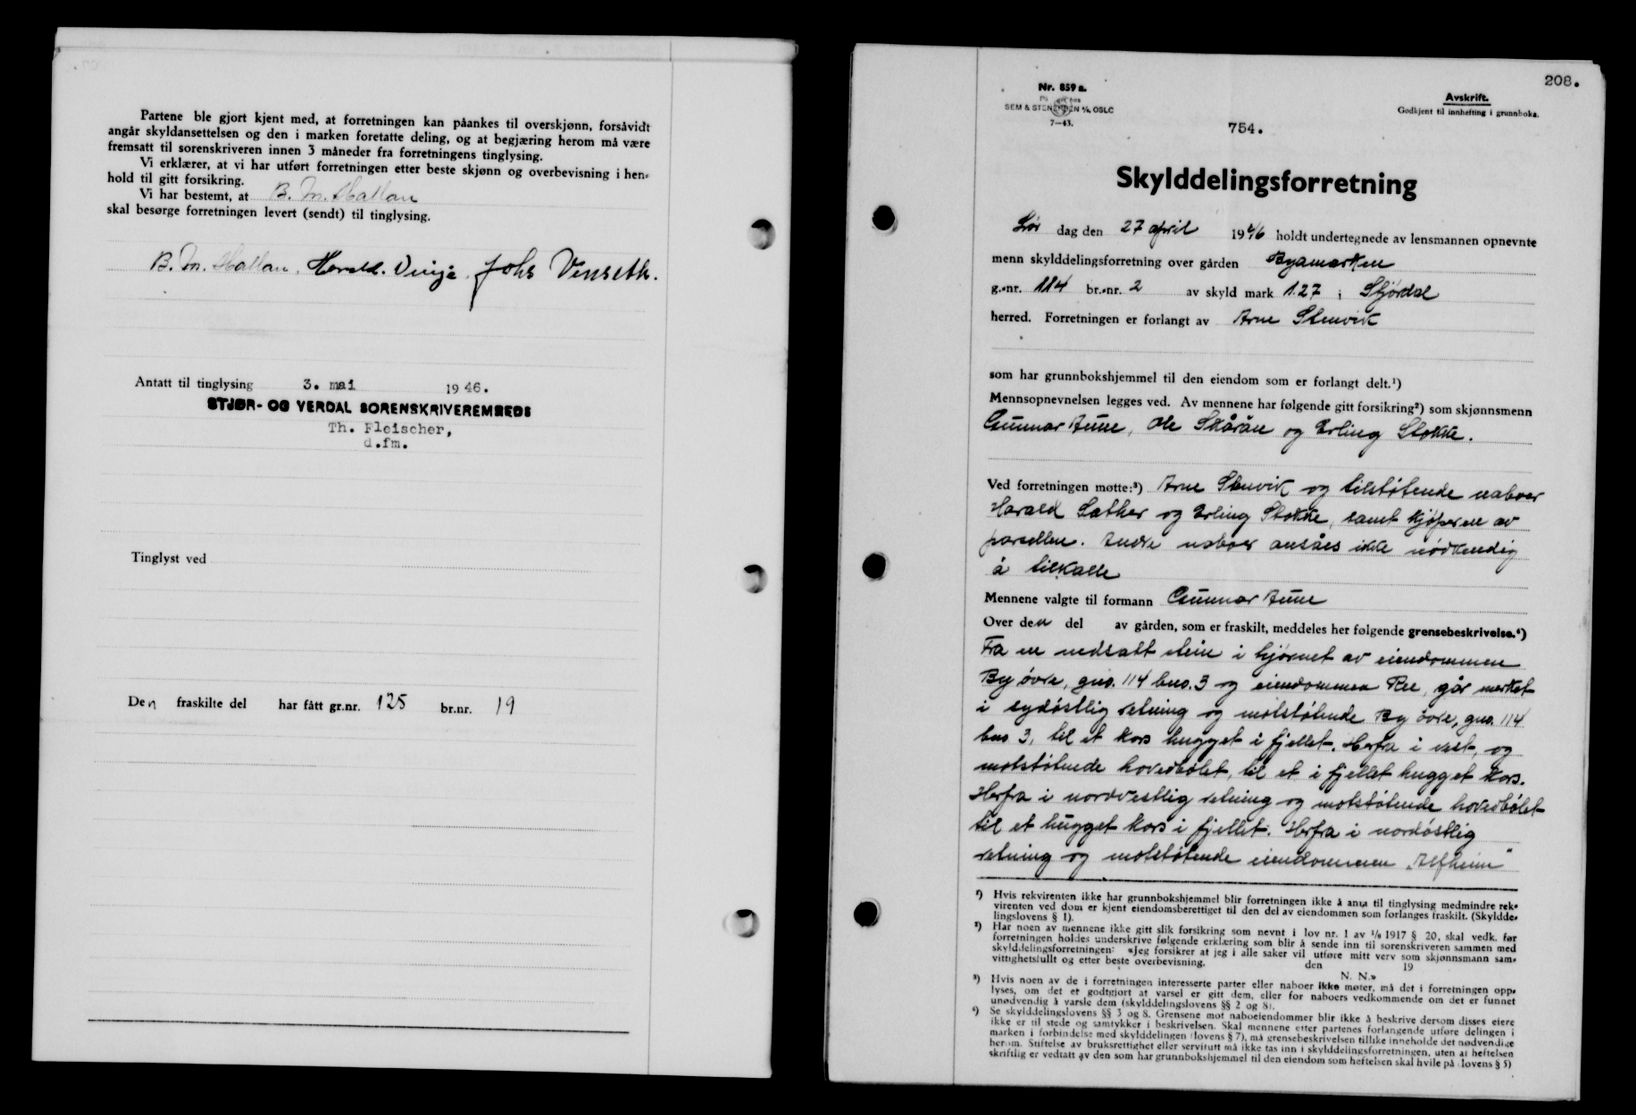 Partene ble gjort kjent med, at forretningen kan påankes til overskjønn, forsåvidt
angår skyldansettelsen og den i marken foretatte deling, og at begjæring herom må være
fremsatt til sorenskriveren innen 3 måneder fra forretningens tinglysing.
Vi erklærer, at vi har utført forretningen etter beste skjønn og overbevisning i hen-
hold til gitt forsikring.
Vi har bestemt, at B. M. Hallan
skal besørge forretningen levert (sendt) til tinglysing.
B. M. Hallan. Harald. Vinje. Johs Venseth.
Antatt til tinglysing 3. mai 1946.
STJØR- OG VERDAL SORENSKRIVEREMBEDE
Th. Fleischer,
d.fm.
Tinglyst ved
Den fraskilte del har fått gr.nr. 125 br.nr. 19
208.
Nr. 859 a.
SEM & STENERSEN A/S, OSLO
7-43.
Avskrift.
Godkjent til innhefting i grunnboka.
754.
Skylddelingsforretning
Lør dag den 27 april 1946 holdt undertegnede av lensmannen opnevnte
menn skylddelingsforretning over gården Byamarken
g.-nr. 114 br.-nr. 2 av skyld mark 1.27 i Stjørdal
herred. Forretningen er forlangt av Arne Stenvik
som har grunnbokshjemmel til den eiendom som er forlangt delt.¹)
Mennsopnevnelsen legges ved. Av mennene har følgende gitt forsikring²) som skjønnsmenn
Gunnar Aune, Ole Skårån og Erling Stokke.
Ved forretningen møtte:³) Arne Stenvik og tilstøtende naboer
Harald Sæther og Erling Stokke, samt kjøperen av
parsellen. Andre naboer ansåes ikke nødvendig
å tilkalle
Mennene valgte til formann Gunnar Aune
Over den del av gården, som er fraskilt, meddeles her følgende grensebeskrivelse.⁴)
Fra en nedsatt stein i hjørnet av eiendommen
By øvre, gno. 114 bno. 3 og eiendommen Ree, går merket
i sydøstlig retning og motstøtende By øvre, gno. 114
bno 3, til et kors hugget i fjellet. Herfra i vest, og
motstøtende hovedbølet, til et i fjellet hugget kors.
Herfra i nordvestlig retning og motstøtende hovedbølet
til et hugget kors i fjellet. Herfra i nordøstlig
retning og motstøtende eiendommen „Alfheim"
¹) Hvis rekvirenten ikke har grunnbokshjemmel blir forretningen ikke å anta til tinglysing medmindre rek-
virenten ved dom er kjent eiendomsberettiget til den del av eiendommen som forlanges fraskilt. (Skyldde-
lingslovens § 1).
²) Har noen av mennene ikke gitt slik forsikring som nevnt i lov nr. 1 av 1/6 1917 § 20, skal vedk. før
forretningen holdes underskrive følgende erklæring som blir å sende inn til sorenskriveren sammen med
skylddelingsforretningen: «Jeg forsikrer at jeg i alle saker vil utføre mitt verv som skjønnsmann sam-
vittighetsfullt og etter beste overbevisning. den 19
N. N.»
³) Hvis noen av de i forretningen interesserte parter eller naboer ikke møter, må det i forretningen opp-
lyses, om det er godtgjort at varsel er gitt dem, eller for naboers vedkommende om det er funnet
unødvendig å varsle dem (skylddelingslovens §§ 2 og 8).
⁴) Se skylddelingslovens §§ 3 og 8. Grensene mot naboeiendommer blir ikke å beskrive dersom disses eiere
ikke er til stede og samtykker i beskrivelsen. Skal mennene etter partenes forlangende utføre delingen i
marken i forbindelse med skylddelingen (lovens § 7), må grensebeskrivelsen tillike inneholde det nødvendige
herom. Stiftelse av bruksrettighet eller servitutt må ikke tas inn i skylddelingsforretningen, uten at heftelsen
skriftlig er vedtatt av den som har grunnbokshjemmel til den eiendom som heftelsen skal hvile på (lovens § 5)